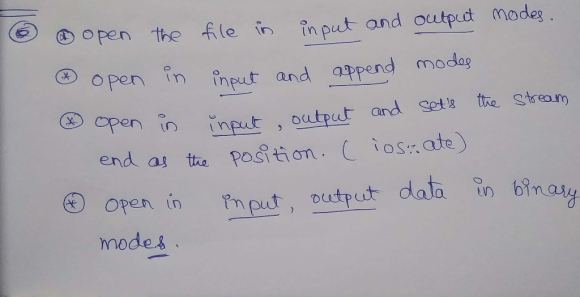 ⑥ ⊛ open the file in input and output modes.
⊛ open in input and append modes
⊛ open in input, output and set's the stream
end as the position. ( ios::ate)
⊛ open in input, output data in binary
modes.